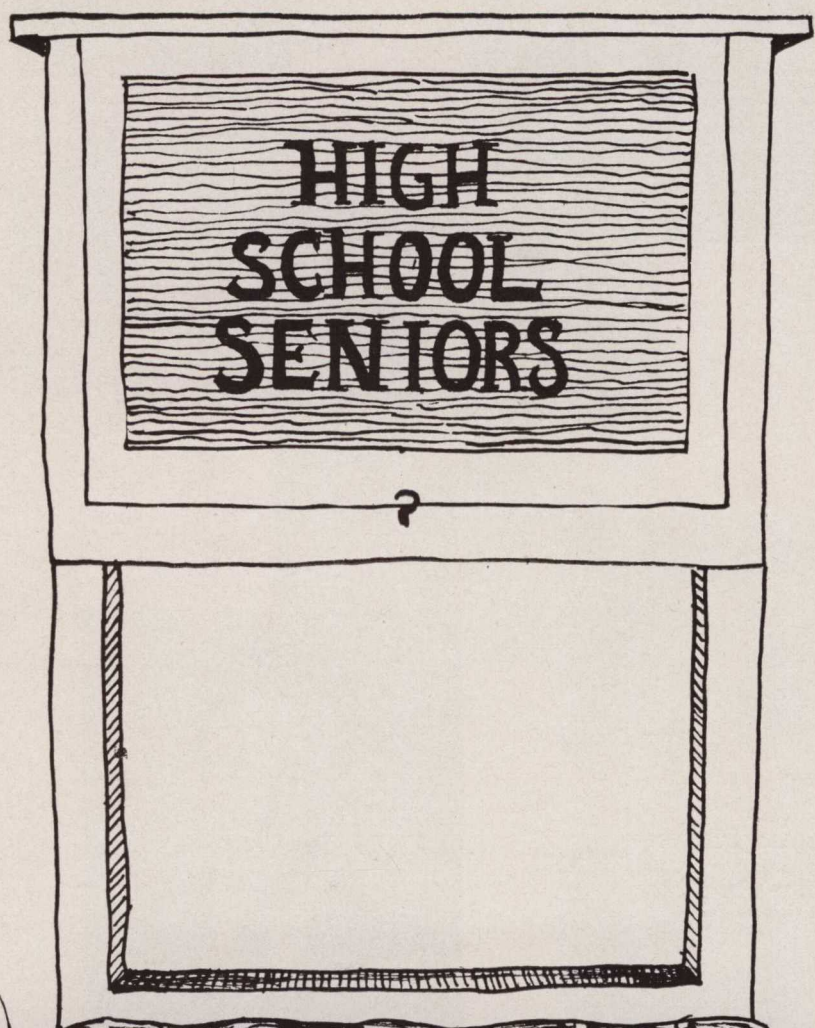 HIGH
SCHOOL
SENIORS